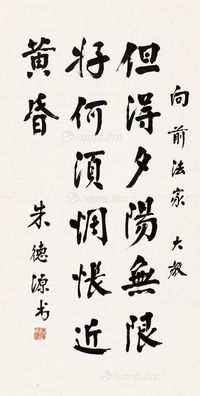 向前法家大教
但得夕陽無限
好何須惆悵近
黃昏
朱德源书